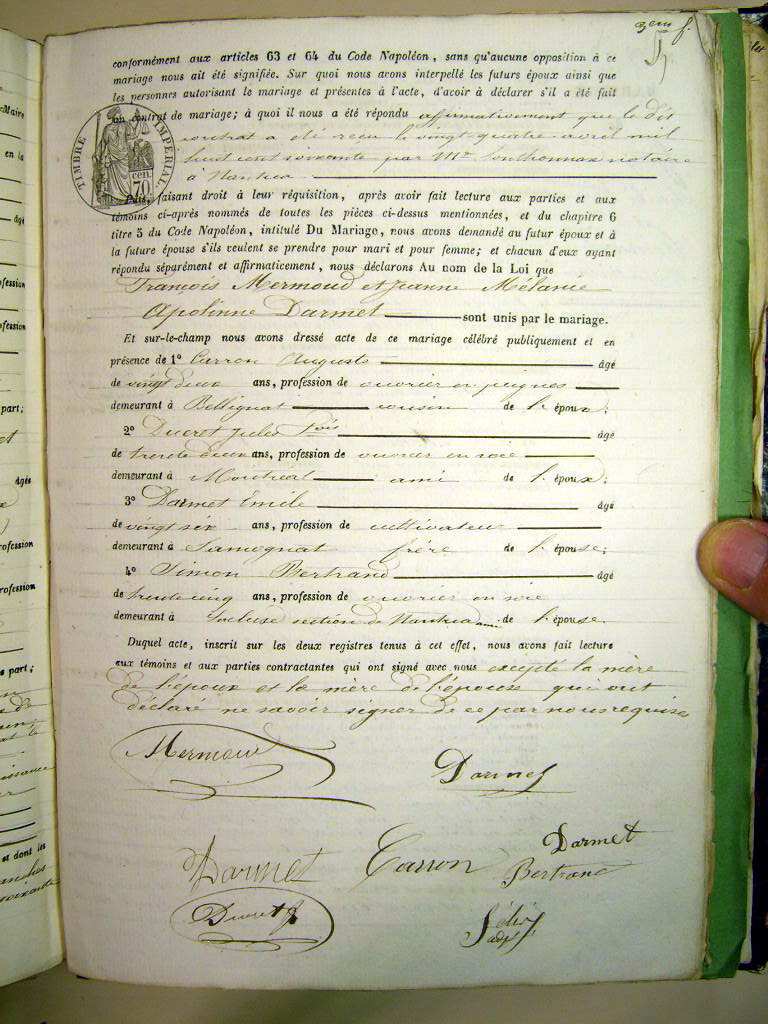 3eme f.
5
conformément aux articles 63 et 64 du Code Napoléon, sans qu'aucune opposition à ce
mariage nous ait été signifiée. Sur quoi nous avons interpellé les futurs époux ainsi que
les personnes autorisant le mariage et présentes à l'acte, d'avoir à déclarer s'il a été fait
un contrat de mariage; à quoi il nous a été répondu affirmativement que le dit
contrat a été reçu le vingt-quatre avril mil
huit cent soixante par Mr notaire
à Nantua
TIMBRE IMPÉRIAL
70 cen.
faisant droit à leur réquisition, après avoir fait lecture aux parties et aux
témoins ci-après nommés de toutes les pièces ci-dessus mentionnées, et du chapitre 6
titre 5 du Code Napoléon, intitulé Du Mariage, nous avons demandé au futur époux et à
la future épouse s'ils veulent se prendre pour mari et pour femme; et chacun d'eux ayant
répondu séparément et affirmativement, nous déclarons Au nom de la Loi que
François Mermoud et Jeanne Mélanie
Apolinne Darmet sont unis par le mariage.
Et sur-le-champ nous avons dressé acte de ce mariage célébré publiquement et en
présence de 1º Carron Auguste âgé
de vingt deux ans, profession de ouvrier en peignes
demeurant à Bellignat cousin de l'époux;
2º Ducret Jules fois âgé
de trente deux ans, profession de ouvrier en soie
demeurant à Montréal ami de l'époux;
3º Darmet Emile âgé
de vingt six ans, profession de cultivateur
demeurant à Samognat frère de l'épouse;
4º Simon Bertrand âgé
de trente cinq ans, profession de ouvrier en soie
demeurant à section de Nantua ami de l'épouse
Duquel acte, inscrit sur les deux registres tenus à cet effet, nous avons fait lecture
aux témoins et aux parties contractantes qui ont signé avec nous excepté la mère
de l'époux et la mère de l'épouse qui ont
déclaré ne savoir signer de ce par nous requise
Mermoud
Darmet
Darmet
Carron
Darmet
Bertrand
Ducret J